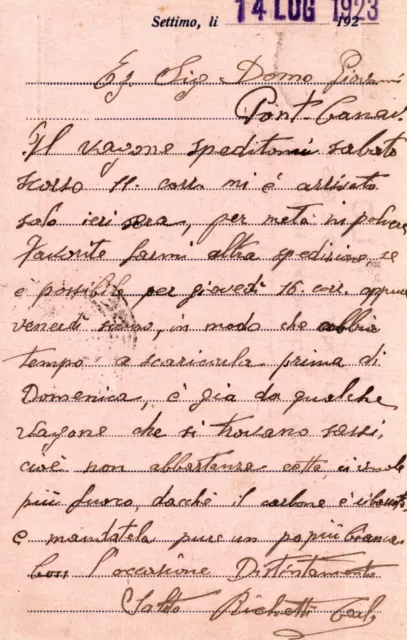 Settimo, li 14 LUG 1923 192
Eg. Sig. Domo Giovanni
Pont Canav.
Il vagone speditomi sabato
scorso 11. corr. mi è arrivato
solo ieri sera, per metà in polvere
Favorite farmi altra spedizione se
è possibile per giovedì 16. corr. oppure
venerdì, in modo che abbia
tempo a scaricarla prima di
Domenica, è già da qualche
vagone che si trovano sassi,
cioè non abbastanza cotta, ci vuole
più fuoco, dacchè il carbone è ribassato
e mandatela pure un po più bianca
Con l'occasione Distintamente
Richetti